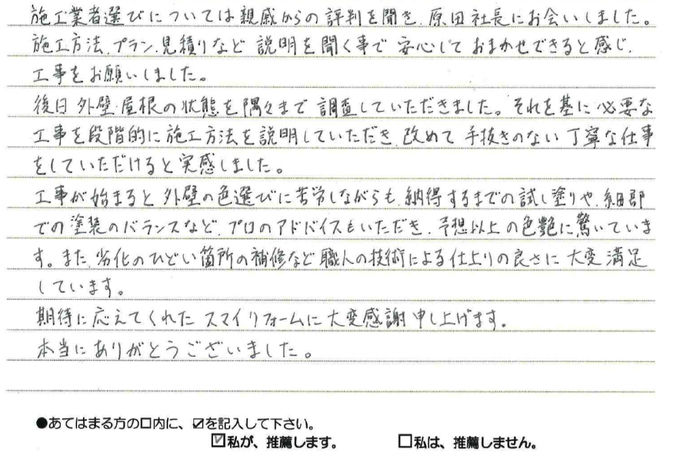 施工業者選びについては親戚からの評判を聞き、原田社長にお会いしました。
施工方法、プラン、見積りなど 説明を聞く事で 安心して おまかせできると感じ、
工事をお願いしました。
後日 外壁・屋根の状態を隅々まで 調査していただきました。それを基に必要な
工事を段階的に施工方法を説明していただき、改めて 手抜きのない 丁寧な仕事
をしていただけると実感しました。
工事が始まると 外壁の色選びに苦労しながらも、納得するまでの試し塗りや、細部
での塗装のバランスなど、プロのアドバイスもいただき、予想以上の色艶に驚いていま
す。また、劣化のひどい箇所の補修など 職人の技術による仕上りの良さに 大変 満足
しています。
期待に応えてくれた スマイリフォームに大変感謝 申し上げます。
本当にありがとうございました。
●あてはまる方の口内に、☑を記入して下さい。
☑私が、推薦します。 □私は、推薦しません。